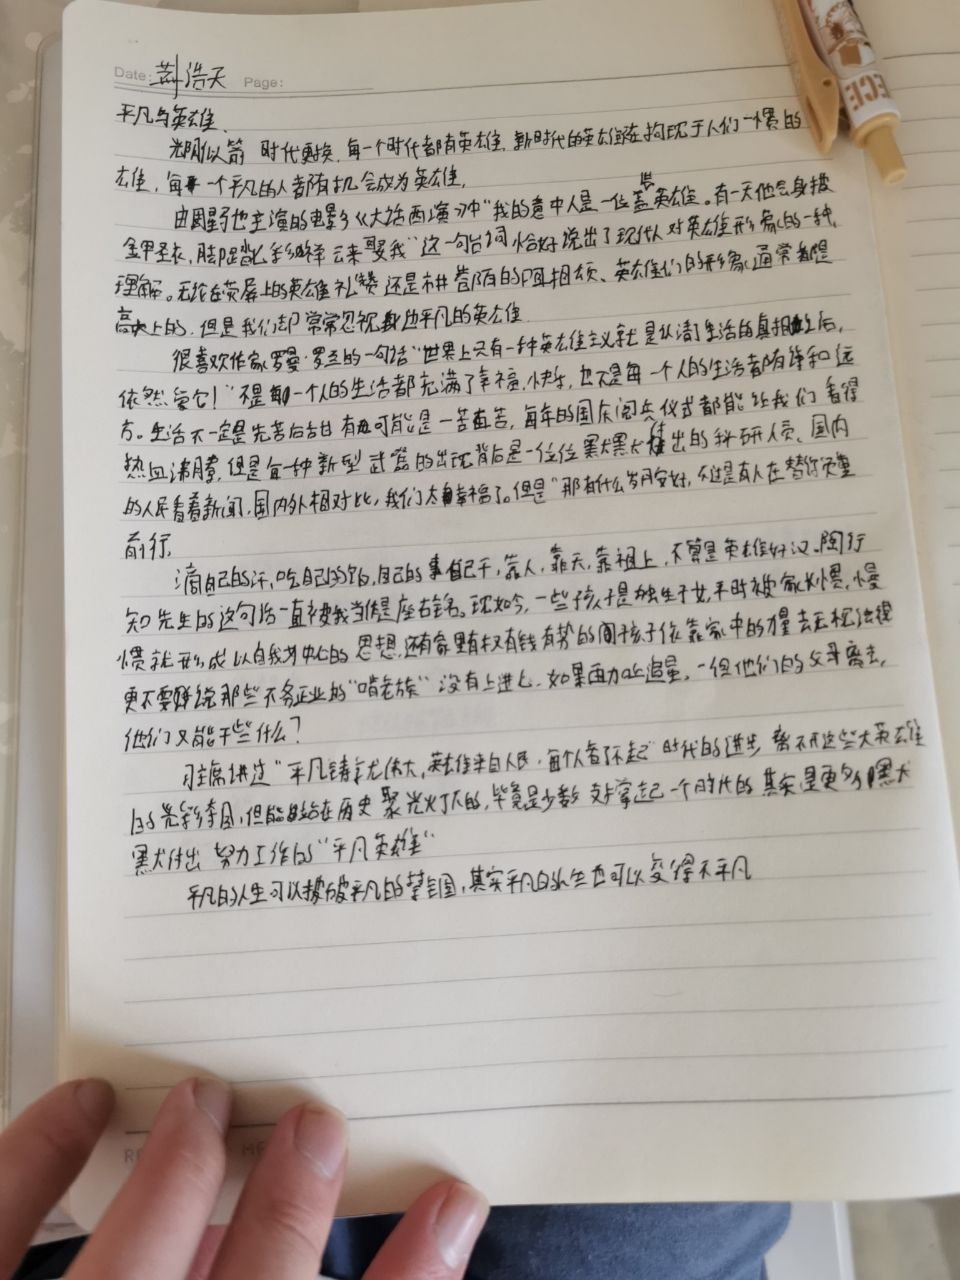 Date: 浩天 Page:
平凡与英雄
光阴似箭 时代更换，每一个时代都有英雄，新时代的英雄 于人们一惯的
英雄，每一个平凡的人都有机会成为英雄，
由周星驰主演的电影《大话西游》中“我的意中人是一位盖世英雄。有一天他会身披
金甲圣衣，脚踏七彩祥云来娶我”这一句台词恰好说出了现代人对英雄形象的一种
理解。无论在荧屏上的英雄礼赞还是 的 英雄们的形象通常都是
高大上的，但是我们却常常忽视身边平凡的英雄
很喜欢作家罗曼·罗兰的一句话“世界上只有一种英雄主义就是认清了生活的真相之后，
依然爱它！”不是每一个人的生活都充满了幸福，快乐，也不是每一个人的生活都有诗和远
方。生活不一定是先苦后甜有可能是一苦再苦，每年的国庆阅兵仪式都能给我们看得
热血沸腾，但是每一种新型武器的出现背后是一位位黑犬黑犬付出的科研人员、国内
的人民看着新闻，国内外相对比，我们太幸福了。但是“那有什么岁月安好，不过是有人在替你负重
前行，
滴自己的汗，吃自己的饭，自己的事自己干，靠人，靠天，靠祖上，不算是英雄好汉。陶行
知先生的这句话一直被我当做是座右铭。现如今，一些孩子是独生子女，平时被家长惯，慢
惯就形成以自我为中心的思想，还有家里有权有钱有势的 孩子依靠家中的力量去 法律
更不要说那些不务正业的“啃老族”没有上进心，如果再加 追星，一但他们的父母离去，
他们又能干些什么？
习主席讲过“平凡铸就伟大，英雄来自人民，每个人都了不起”时代的进步 离不开这些大英雄
的光彩 但能站在历史聚光灯下的，毕竟是少数 支撑起一个时代的其实是更多黑犬
黑犬付出 努力工作的“平凡英雄”
平凡的人生可以 平凡的 其实平凡的人生也可以变得不平凡
ECE